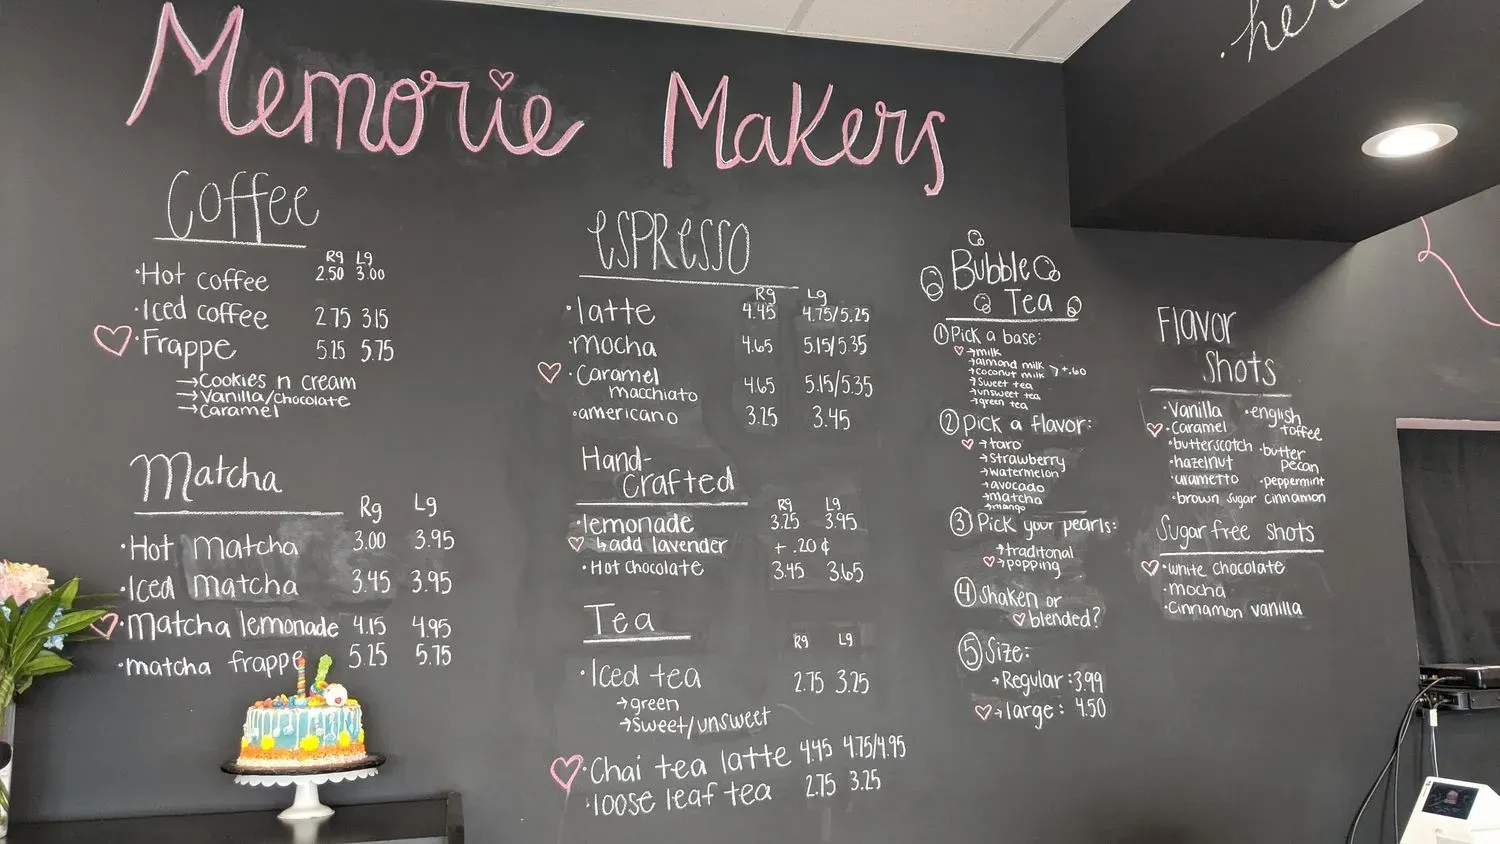 Memorie Makers
Coffee
Rg Lg
• Hot coffee 2.50 3.00
• Iced coffee 2.75 3.15
• Frappe 5.25 5.75
→ Cookies n cream
→ Vanilla/Chocolate
→ Caramel
Matcha
Rg Lg
• Hot Matcha 3.00 3.95
• Iced Matcha 3.45 3.95
• Matcha lemonade 4.15 4.95
• matcha frappe 5.25 5.75
espresso
Rg Lg
• latte 4.45 4.75/5.25
• mocha 4.65 5.15/5.35
• Caramel
macchiato 4.65 5.15/5.35
• americano 3.25 3.45
Hand-
crafted
Rg Lg
• lemonade 3.25 3.95
↳ add lavender + .20 ¢
• Hot chocolate 3.45 3.65
Tea
Rg Lg
• Iced tea 2.75 3.25
→ green
→ sweet/unsweet
• Chai tea latte 4.45 4.75/4.95
• loose leaf tea 2.75 3.25
Bubble
Tea
① Pick a base:
→ milk
→ almond milk
→ coconut milk > +.60
→ sweet tea
→ unsweet tea
→ green tea
② Pick a flavor:
→ taro
→ strawberry
→ watermelon
→ avocado
→ matcha
→ mango
③ Pick your pearls:
→ traditonal
→ popping
④ Shaken or
blended?
⑤ Size:
→ Regular: 3.99
→ large: 4.50
Flavor
Shots
• Vanilla
• Caramel
• butterscotch
• hazelnut
• urametto
• brown sugar
• english
toffee
• butter
pecan
• peppermint
cinnamon
Sugar free shots
• white chocolate
• mocha
• Cinnamon vanilla